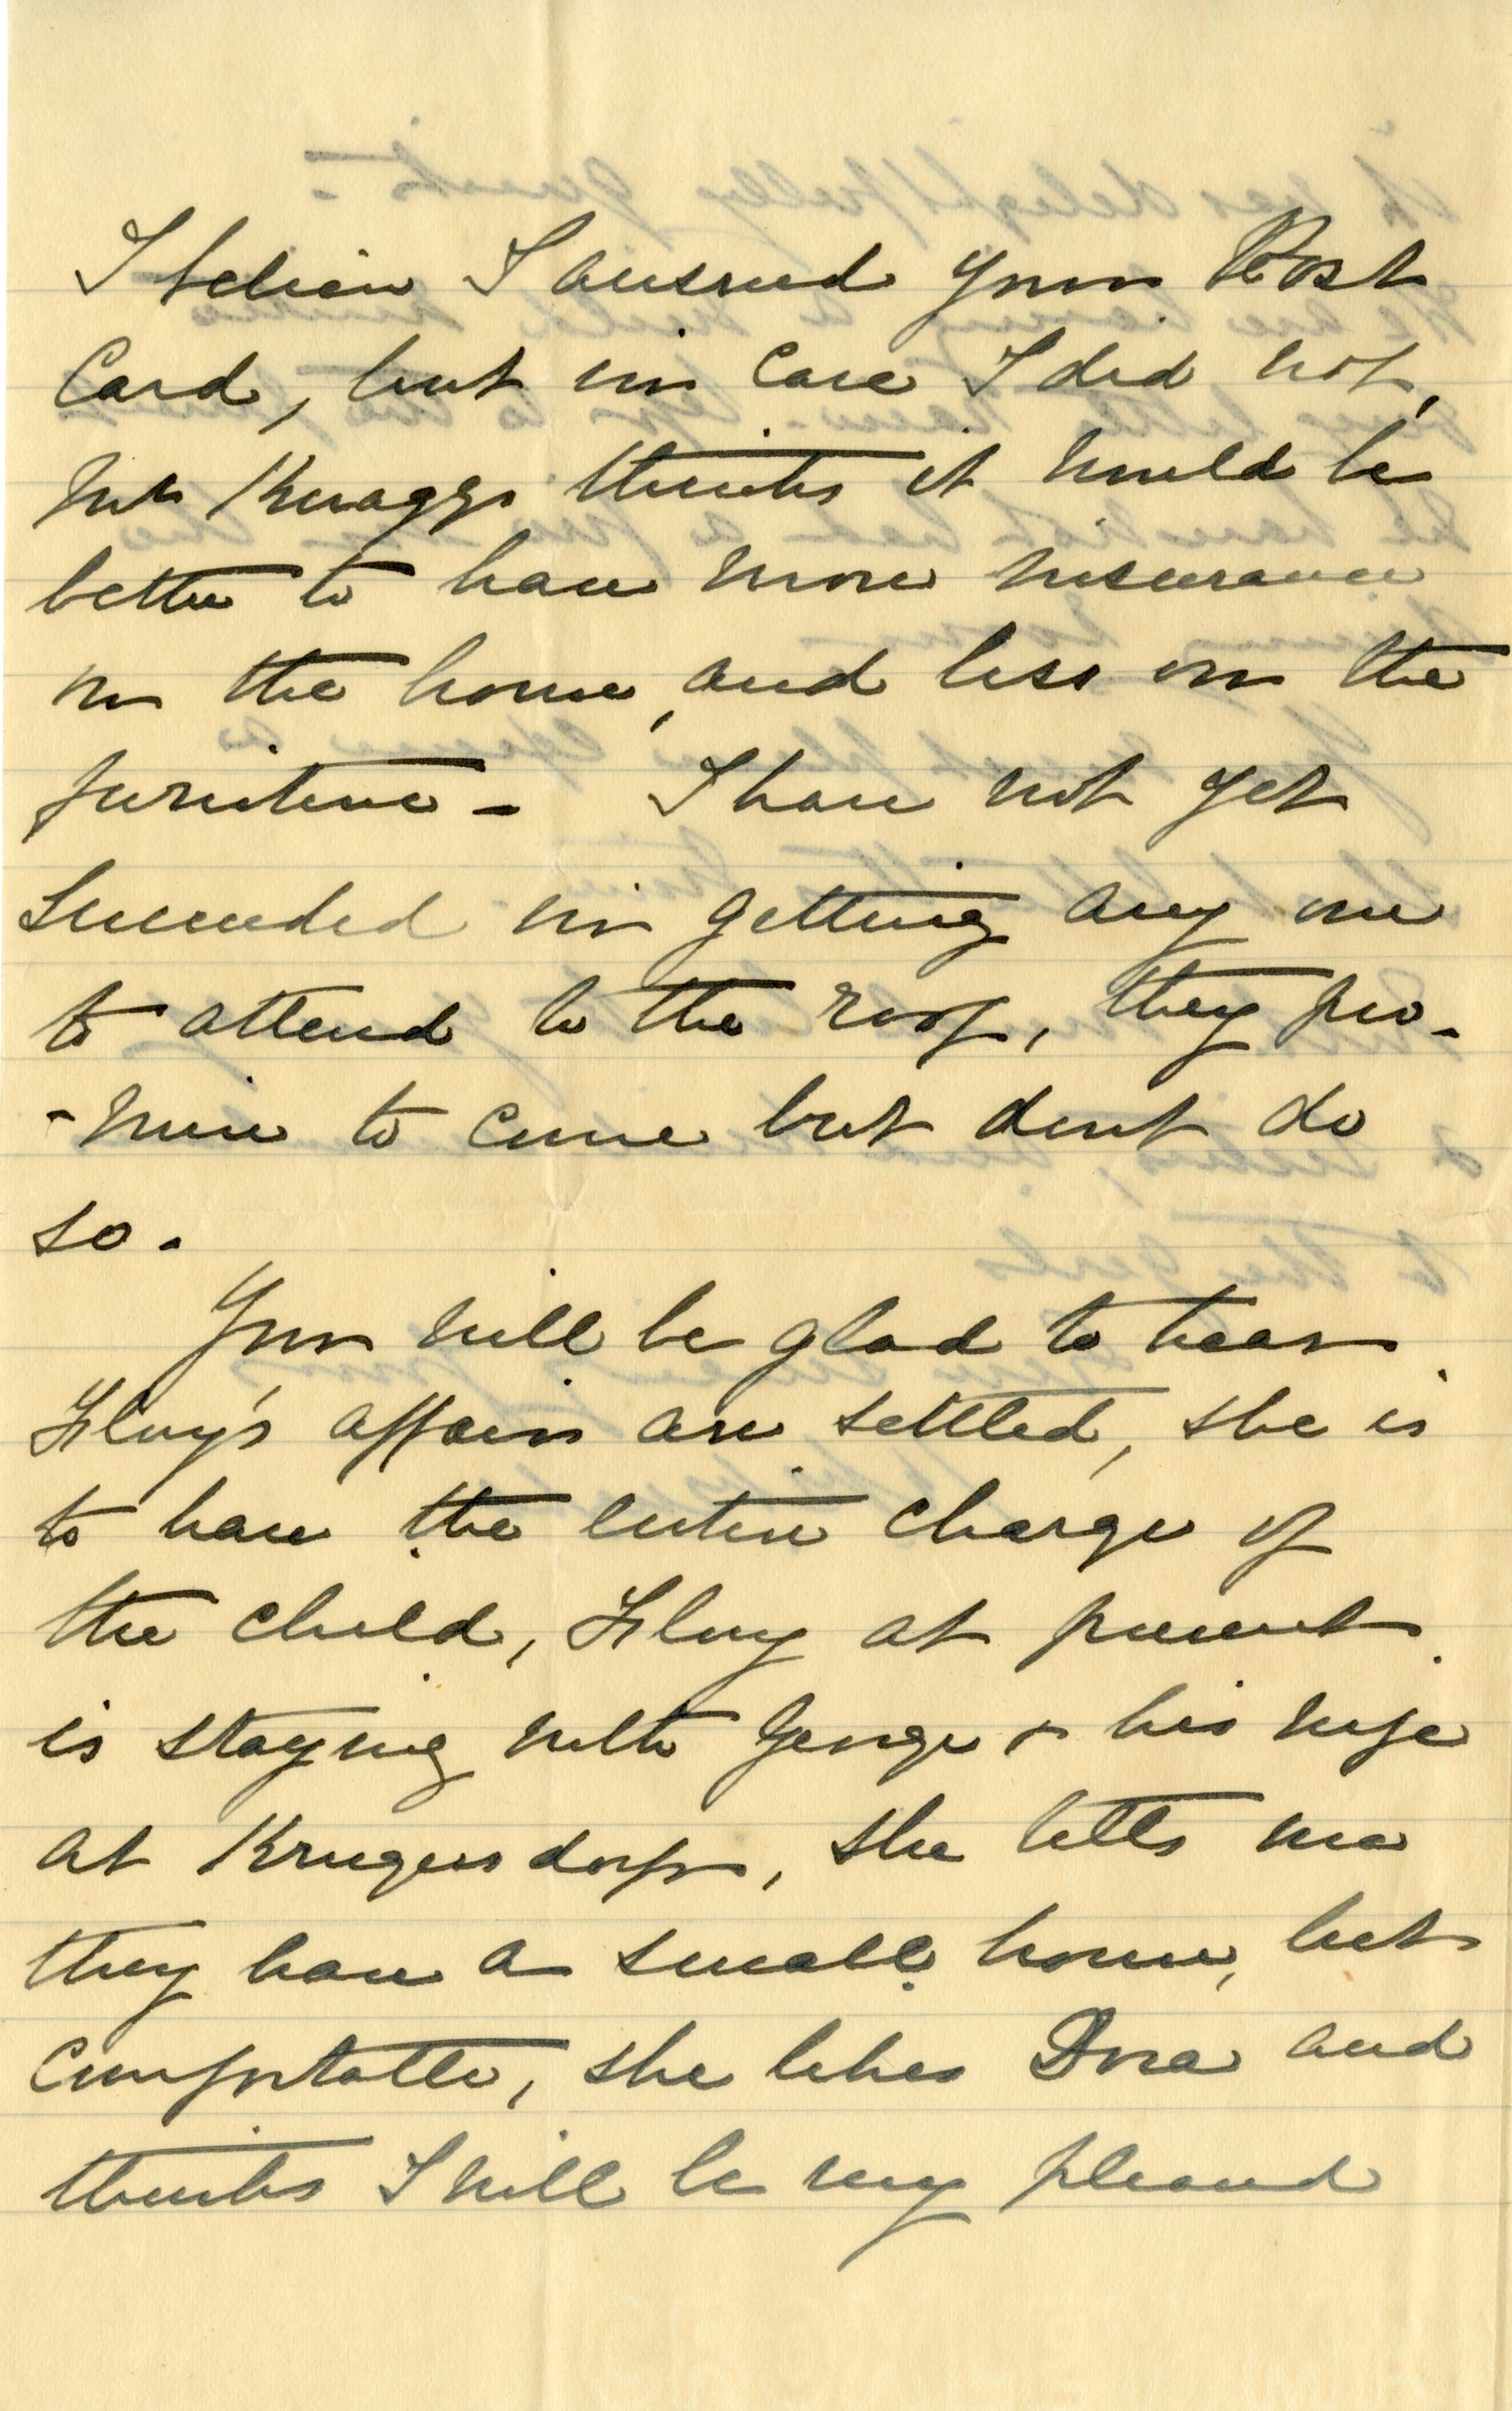 I believe I answered your Post
Card, but in case I did not,
Mr Knaggs thinks it would be
better to have more insurance
on the house, and less on the
furniture - I have not yet
succeeded in getting any one
to attend to the roof, they pro-
-mise to come but dont do
so.
You will be glad to hear
Flory's affairs are settled, she is
to have the entire charge of
the child, Flory at present
is staying with George & his wife
at Krugersdorp, she tells me
they have a small house, but
comfortable, she likes Dora and
thinks I will be very pleased